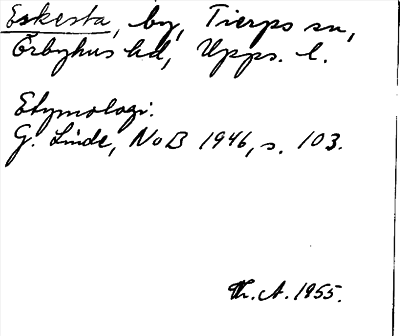 Eskesta, by, Tierps sn,
Örbyhus hd, Upps. l.
Etymologi:
G. Linde, NoB 1946, s. 103.
Th. A. 1955.